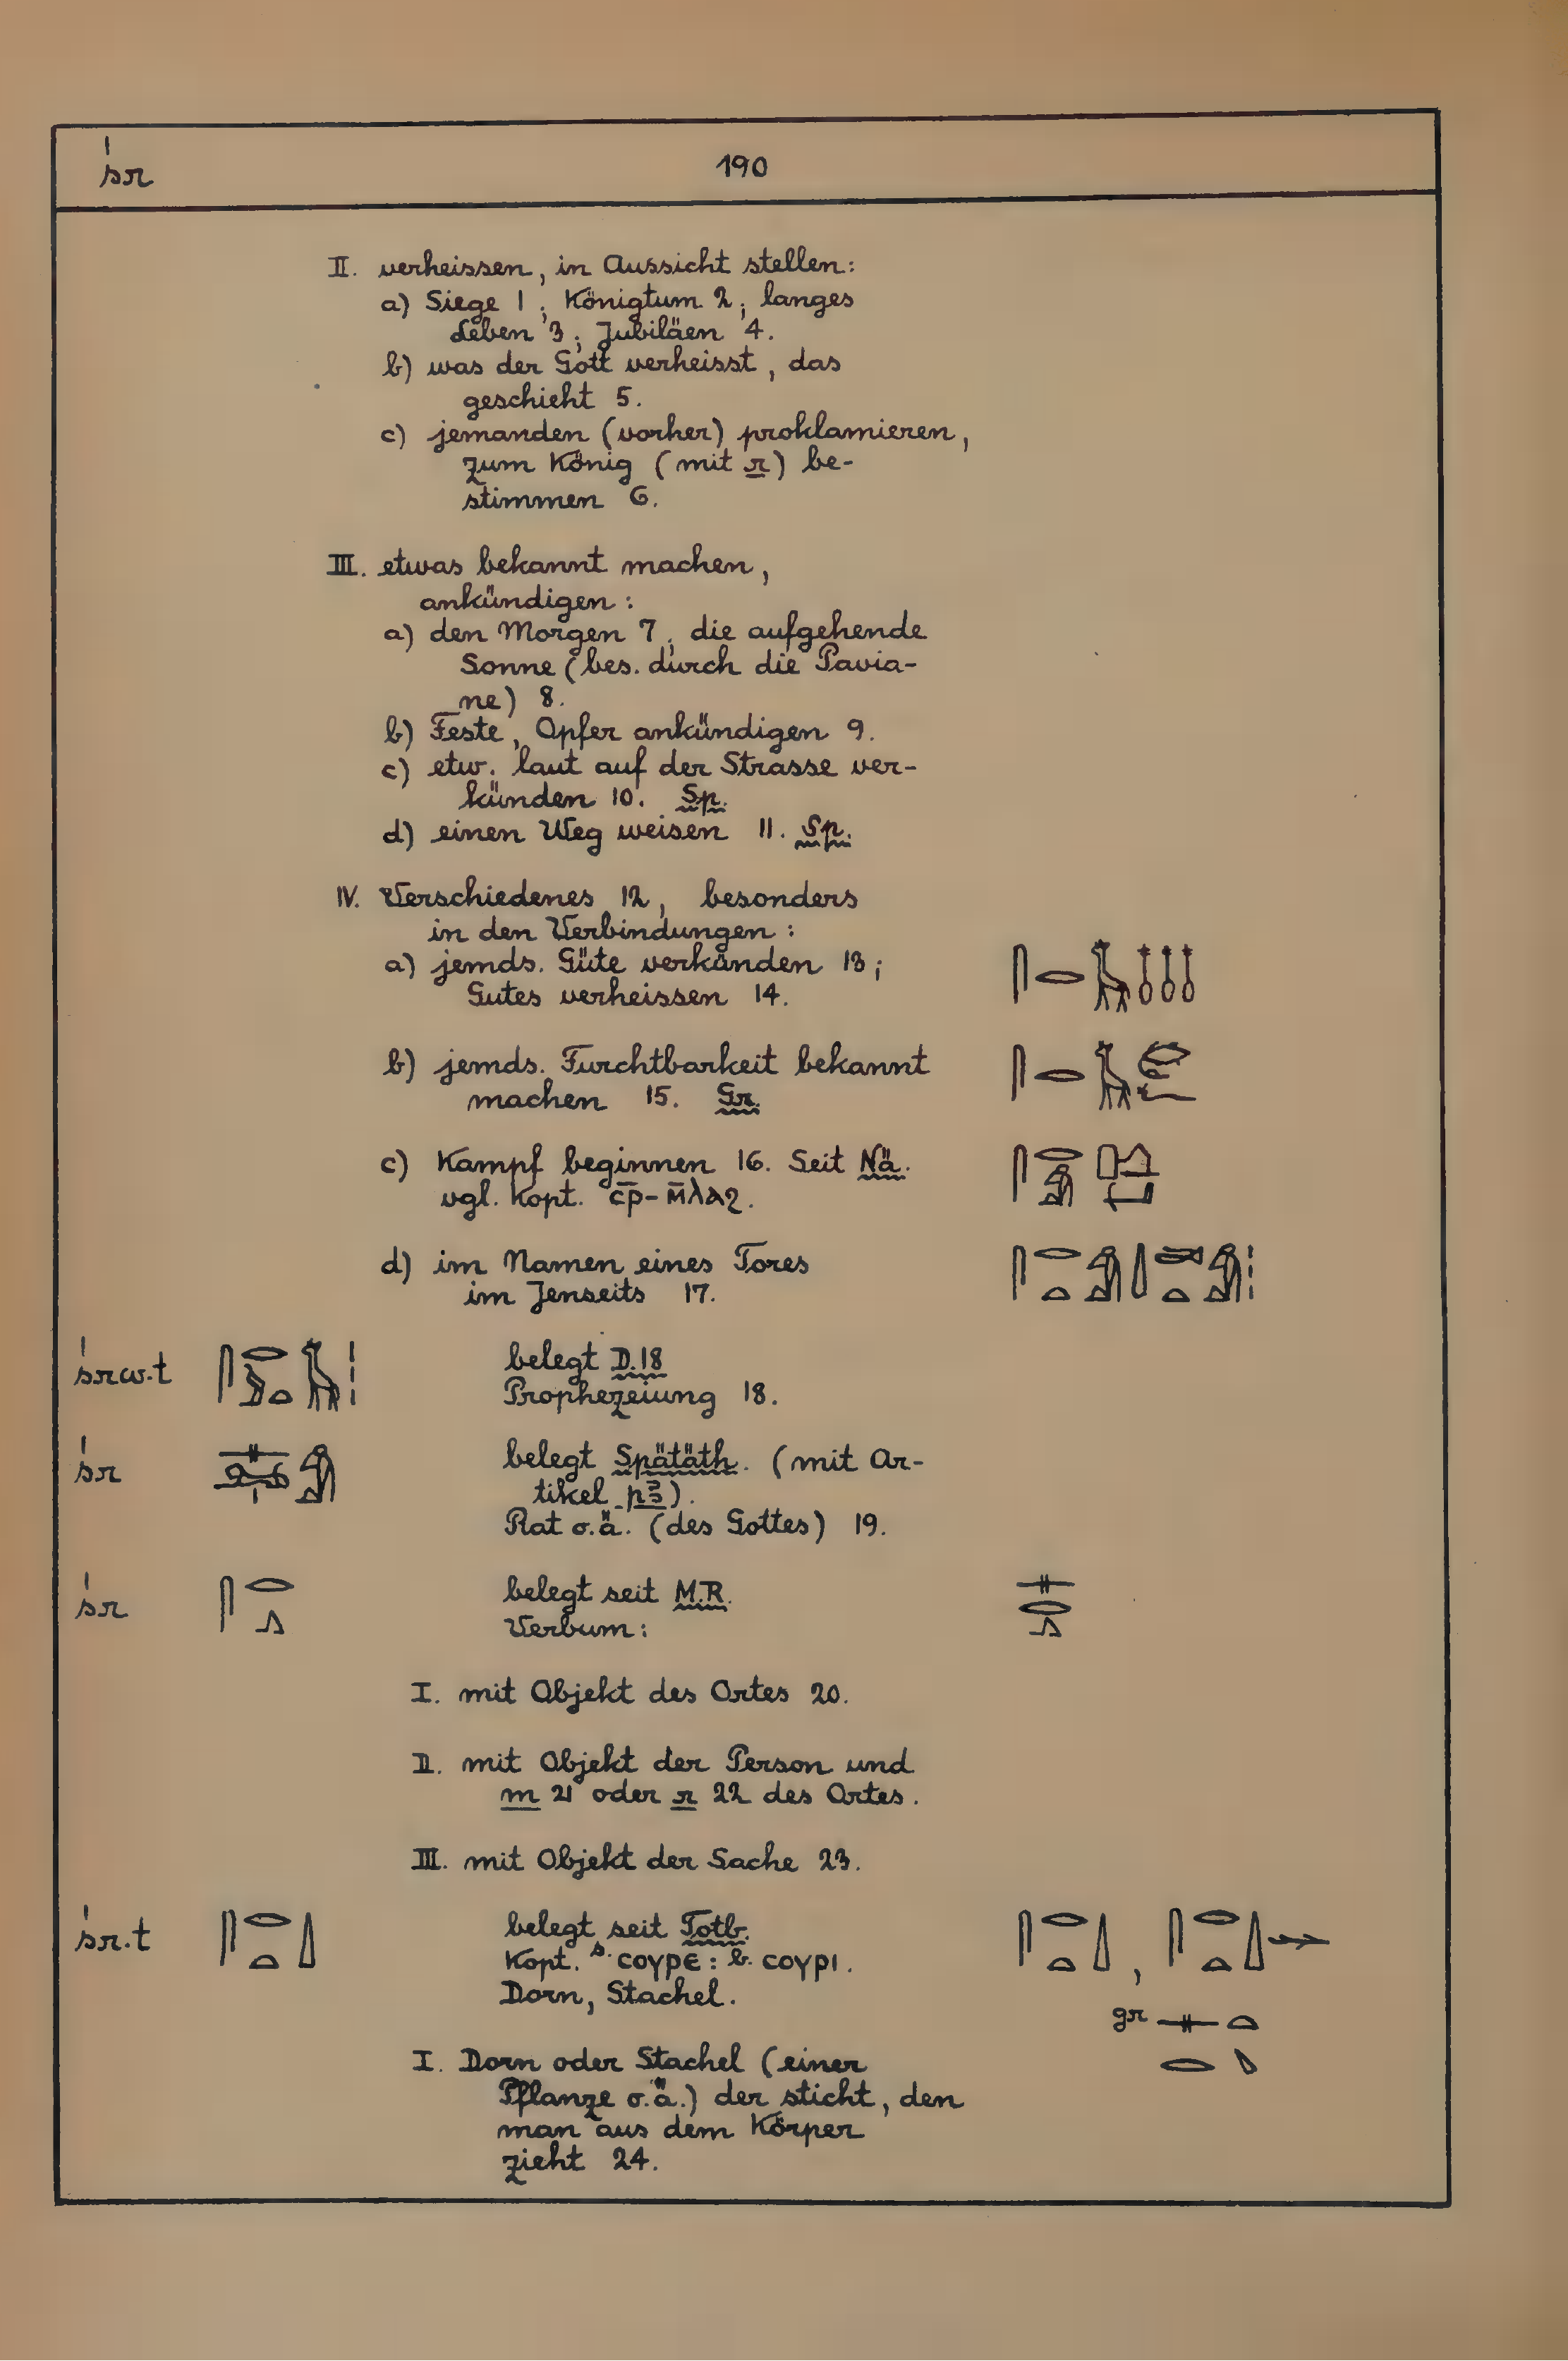 śr 190
II. verheissen, in Aussicht stellen:
a) Siege 1; Königtum 2; langes
Leben 3; Jubiläen 4.
b) was der Gott verheisst, das
geschieht 5.
c) jemanden (vorher) proklamieren,
zum König (mit r) be-
stimmen 6.
III. etwas bekannt machen,
ankündigen:
a) den Morgen 7; die aufgehende
Sonne (bes. durch die Pavia-
ne) 8.
b) Feste, Opfer ankündigen 9.
c) etw. laut auf der Strasse ver-
künden 10. Sp.
d) einen Weg weisen 11. Sp.
IV. Verschiedenes 12, besonders
in den Verbindungen:
a) jemds. Güte verkünden 13;
Gutes verheissen 14.
b) jemds. Furchtbarkeit bekannt
machen 15. Gr.
c) Kampf beginnen 16. Seit Nä.
vgl. kopt. c̅p̅-м̅λaϩ.
d) im Namen eines Tores
im Jenseits 17.
śrw.t belegt D.18
Prophezeiung 18.
śr belegt Spätäth. (mit Ar-
tikel pꜣ).
Rat o.ä. (des Gottes) 19.
śr belegt seit M.R.
Verbum:
I. mit Objekt des Ortes 20.
II. mit Objekt der Person und
m 21 oder r 22 des Ortes.
III. mit Objekt der Sache 23.
śr.t belegt seit Totb.
Kopt. s. ⲥⲟⲩⲣⲉ: b. ⲥⲟⲩⲣⲓ.
Dorn, Stachel.
gr
I. Dorn oder Stachel (einer
Pflanze o.ä.) der sticht, den
man aus dem Körper
zieht 24.